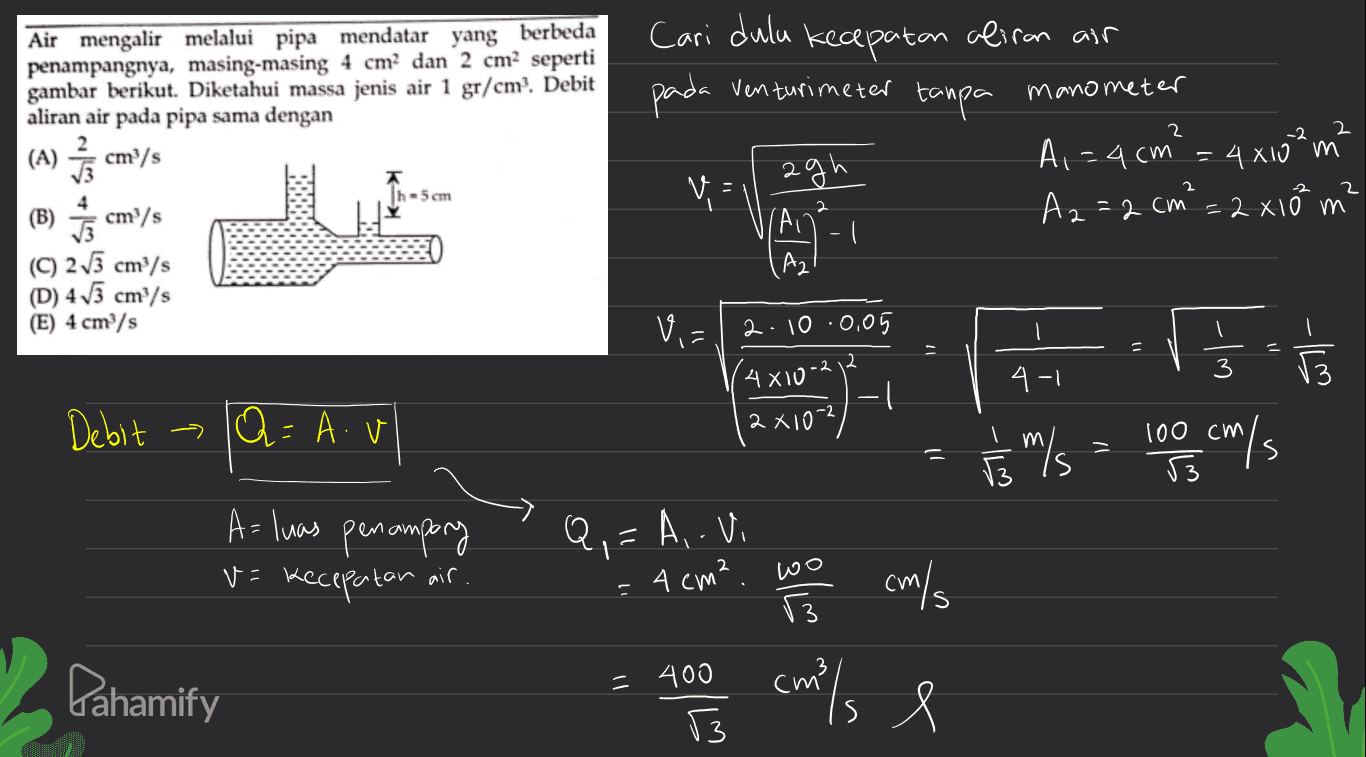 Air mengalir melalui pipa mendatar yang berbeda
penampangnya, masing-masing 4 cm² dan 2 cm² seperti
gambar berikut. Diketahui massa jenis air 1 gr/cm³. Debit
aliran air pada pipa sama dengan
(A) 2/√3 cm³/s
(B) 4/√3 cm³/s
(C) 2√3 cm³/s
(D) 4√3 cm³/s
(E) 4 cm³/s
h=5 cm
Cari dulu kecepatan aliran air
pada venturimeter tanpa manometer
A₁ = 4 cm² = 4 x10⁻² m²
A₂ = 2 cm² = 2 x10⁻² m²
V₁ = √(2gh / ((A₁/A₂)² - 1))
V₁ = √(2 . 10 . 0,05 / ((4 x10⁻² / 2 x10⁻²)² - 1)) = √(1 / (4-1)) = √(1/3) = 1/√3
= 1/√3 m/s = 100/√3 cm/s
Debit → Q = A . v
A = luas penampang
v = kecepatan air.
Q₁ = A₁ . V₁
= 4 cm² . 100/√3 cm/s
= 400/√3 cm³/s
Pahamify